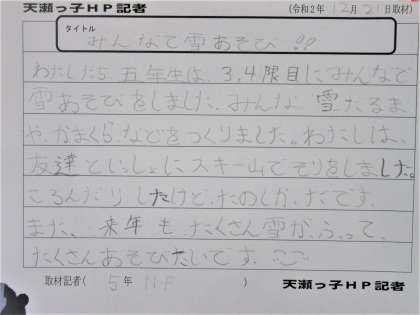 天瀬っ子HP記者 (令和2年 12月 21日取材)
タイトル
みんなで雪あそび!!
わたしたち五年生は、3,4限目にみんなで
雪あそびをしました。みんな 雪だるま
や、かまくらなどをつくりました。わたしは、
友達といっしょにスキー山でそりをしました。
ころんだりしたけど、たのしかったです。
また、来年もたくさん雪がふって、
たくさんあそびたいです。
取材記者( 5年 N・F ) 天瀬っ子HP記者